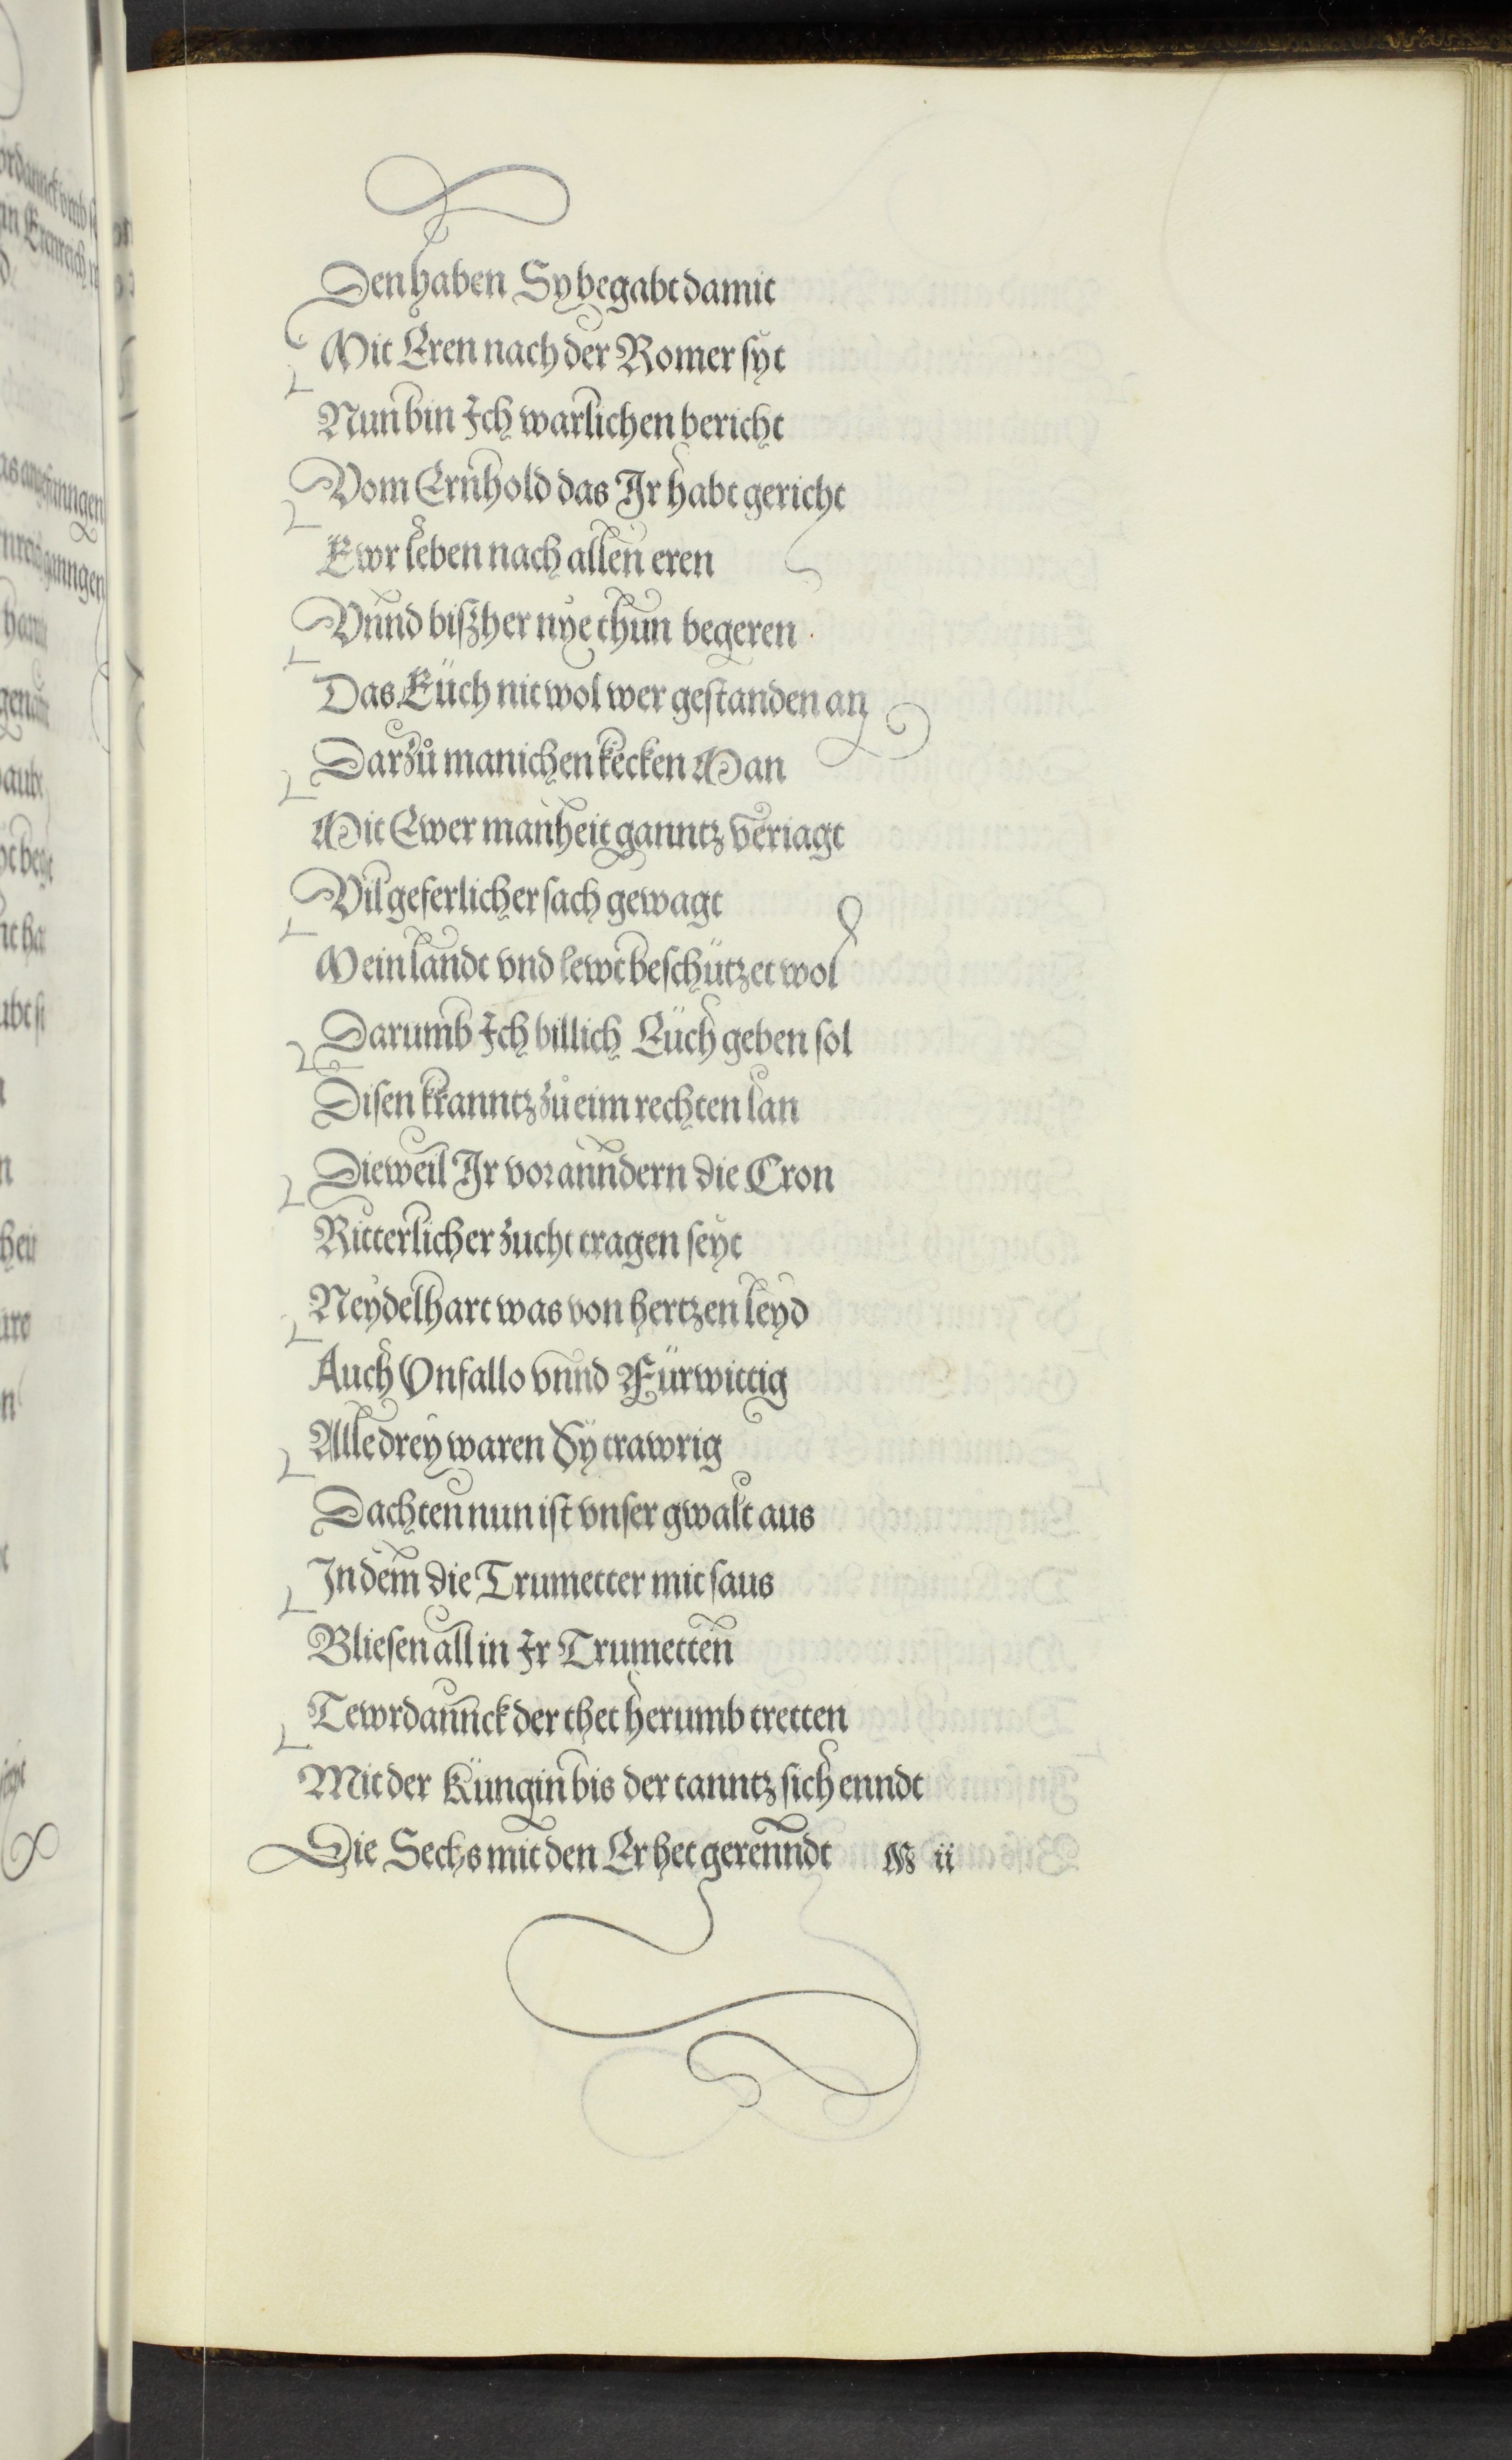 Den haben Sy begabt damit
Mit Eren nach der Romer syt
Nun bin Ich warlichen bericht
Vom Ernhold das Ir habt gericht
Ewr leben nach allen eren
Vnnd biszher nye thun begeren
Das Eüch nit wol wer gestanden an
Darzů manichen kecken Man
Mit Ewer manheit ganntz veriagt
Vil geferlicher sach gewagt
Mein landt vnd lewt beschützet wol
Darumb Ich billich Eüch geben sol
Disen kranntz zů eim rechten lan
Dieweil Ir vor anndern die Cron
Ritterlicher zucht tragen seyt
Neydelhart was von hertzen leyd
Auch Vnfallo vnnd Fürwittig
Alle drey waren Sy trawrig
Dachten nun ist vnser gwalt aus
In dem die Trumetter mit saus
Bliesen all in Ir Trumetten
Tewrdannck der thet herumb tretten
Mit der Küngin bis der tanntz sich enndt
Die Sechs mit den Er het gerenndt ii